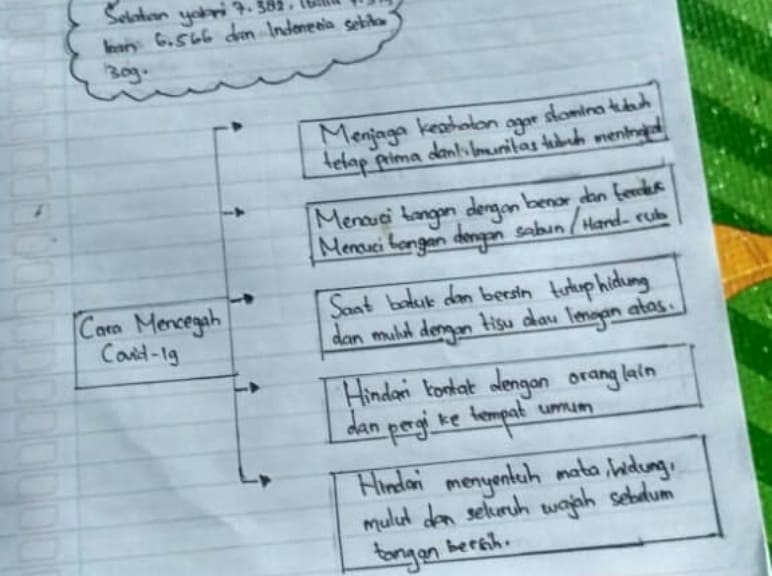 Selatan yakni 7.382,
6.566 dan Indonesia sekitar
309.
Menjaga kesehatan agar stamina tubuh
tetap prima dan imunitas tubuh meningkat
Mencuci tangan dengan benar dan
Mencuci tangan dengan sabun / Hand-rub
Saat batuk dan bersin tutup hidung
dan mulut dengan tisu atau lengan atas.
Cara Mencegah
Covid-19
Hindari kontak dengan orang lain
dan pergi ke tempat umum
Hindari menyentuh mata, hidung,
mulut dan seluruh wajah sebelum
tangan bersih.